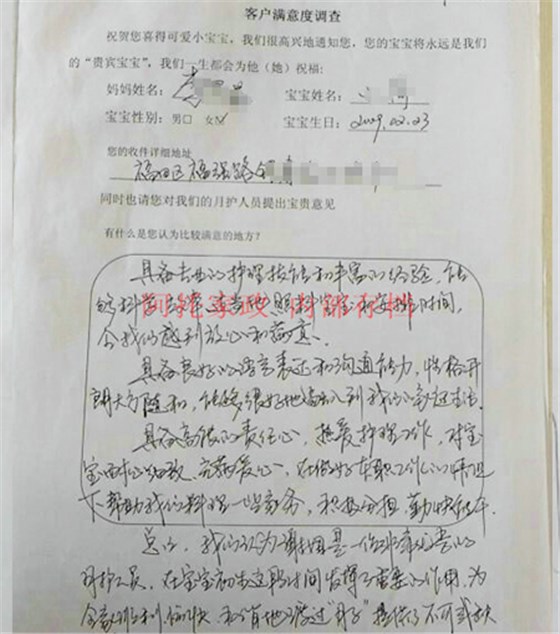 客户满意度调查
祝贺您喜得可爱小宝宝，我们很高兴地通知您，您的宝宝将永远是我们
的“贵宾宝宝”，我们一生都会为他（她）祝福：
妈妈姓名：李 宝宝姓名：
宝宝性别：男□ 女☑ 宝宝生日：2009.02.23
您的收件详细地址
福田区福强路
同时也请您对我们的月护人员提出宝贵意见
有什么是您认为比较满意的地方？
具备专业的护理技能和丰富的经验，能
够科学 适当地照料宝宝 安排时间，
令我们感到放心和满意。
家政 内部存档
具备良好的语言表达和沟通能力，性格开
朗大方随和，能够很好地融入到我们的家庭生活。
具备高度的责任心，热爱护理工作，对宝
宝细心细致、充满爱心，在做好本职工作的情况
下帮助我们料理一些家务，积极分担，勤快
总之，我们认为谢 是一位非常优秀的
月护人员，在宝宝初生这段时间发挥了重要的作用，为
全家顺利、愉快 地度过“月子”提供了不可或缺